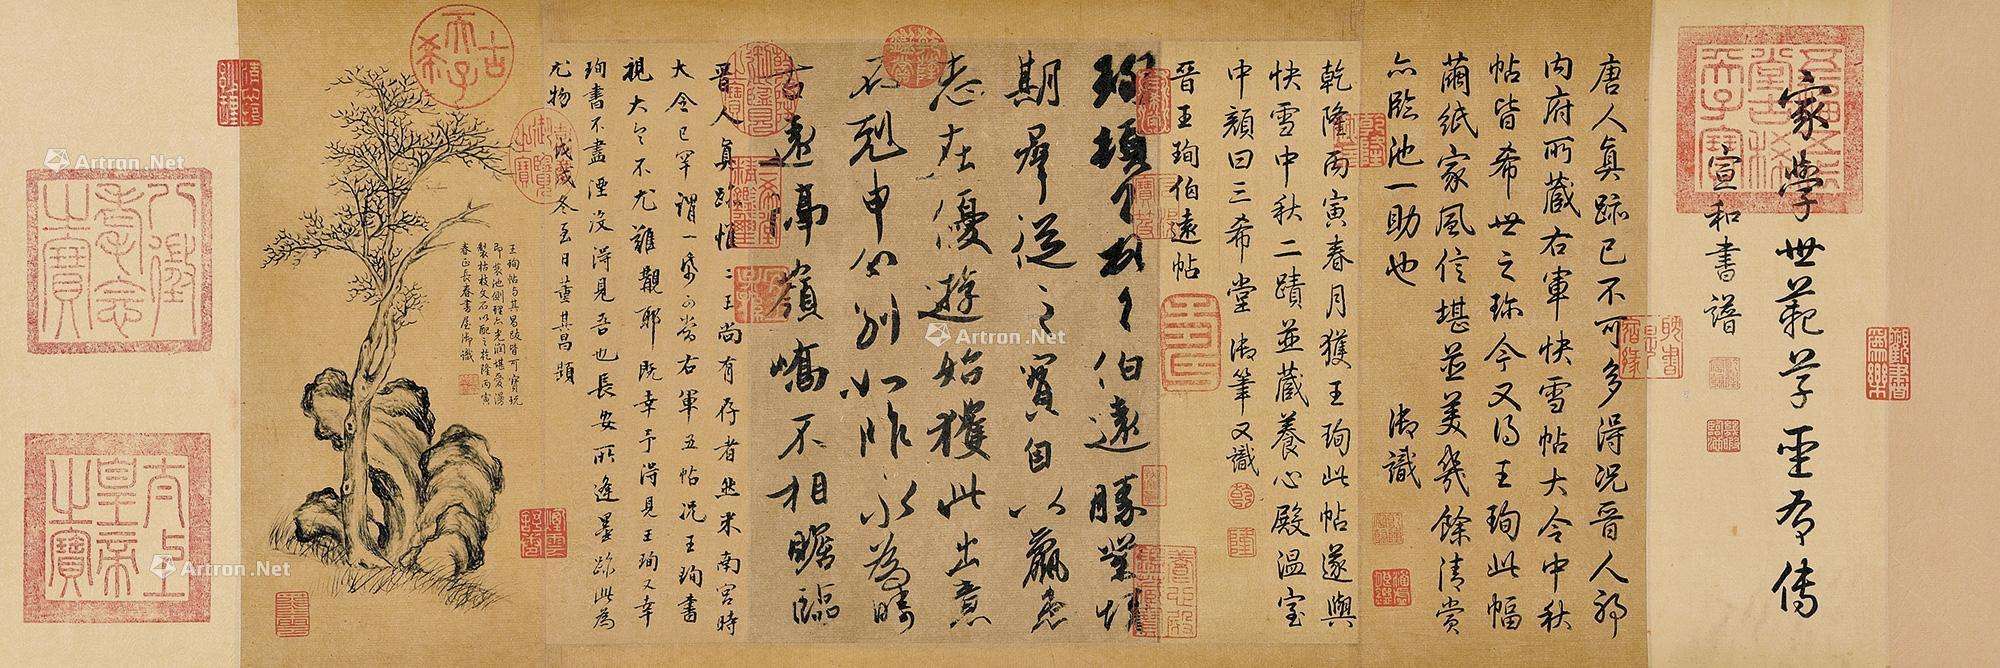 家學世範草聖有傳
宣和書譜
唐人真跡已不可多得況晉人耶
內府所藏右軍快雪帖大令中秋
帖皆希世之珍今又得王珣此幅
繭紙家風信堪並美幾餘清賞
亦臨池一助也 御識
乾隆丙寅春月獲王珣此帖遂與
快雪中秋二蹟並藏養心殿溫室
中顏曰三希堂 御筆又識
晉王珣伯遠帖
珣頓首頓首伯遠勝業情
期群從之寶自以羸患
志在優遊始獲此出意
不剋申分別如昨永為疇
古遠隔嶺嶠不相瞻臨
晉人真跡惟二王尚有存者然米南宮時
大令已罕謂一紙可當右軍五帖況王珣書
視大令不尤難覯耶既幸予得見王珣又幸
珣書不盡湮沒得見吾也長安所逢墨跡此為
尤物
戊戌冬至日董其昌題
王珣帖與其昌跋皆可寶玩
即裝池側理亦光潤堪愛漫
製枯枝文石以配之乾隆丙寅
春正長春書屋御識
古希天子
八徵耄念之寶
太上皇帝之寶
Artron.Net
Artron.Net
Artron.Net
Artron.Net
Artron.Net